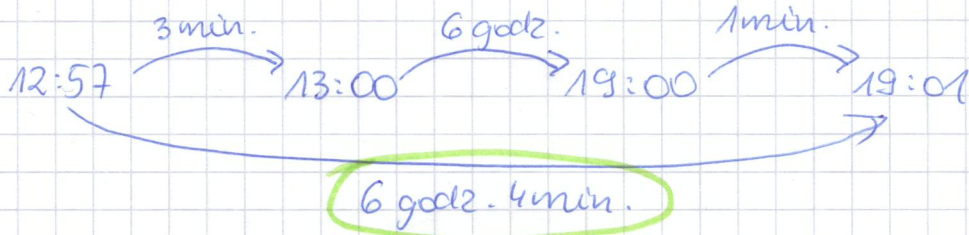 3 min. 6 godz. 1 min.
12:57 13:00 19:00 19:01
6 godz. 4 min.